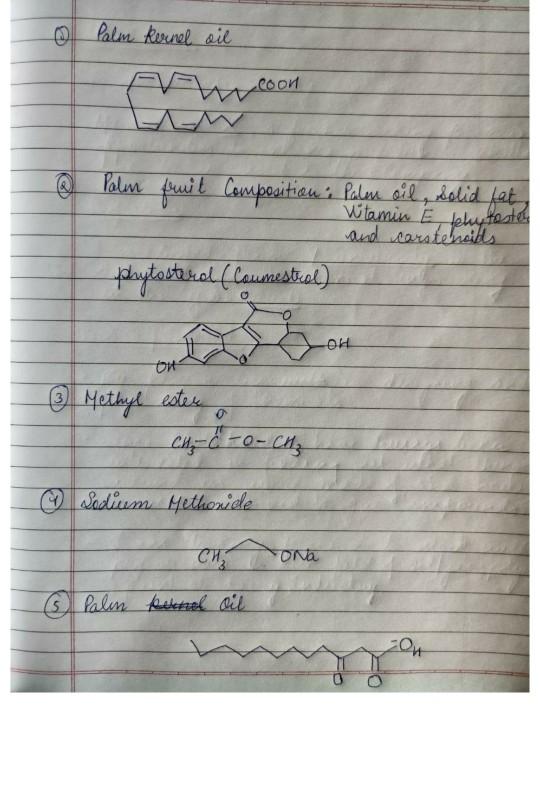 ① Palm kernel oil
COOH
② Palm fruit Composition: Palm oil, solid fat,
Vitamin E, phytoster
and carotenoids
phytosterol (Coumestrol)
O
O
OH
OH
O
③ Methyl ester
O
CH3-C-O-CH3
④ Sodium Methoxide
CH3 ONa
⑤ Palm kernel oil
OH
O O